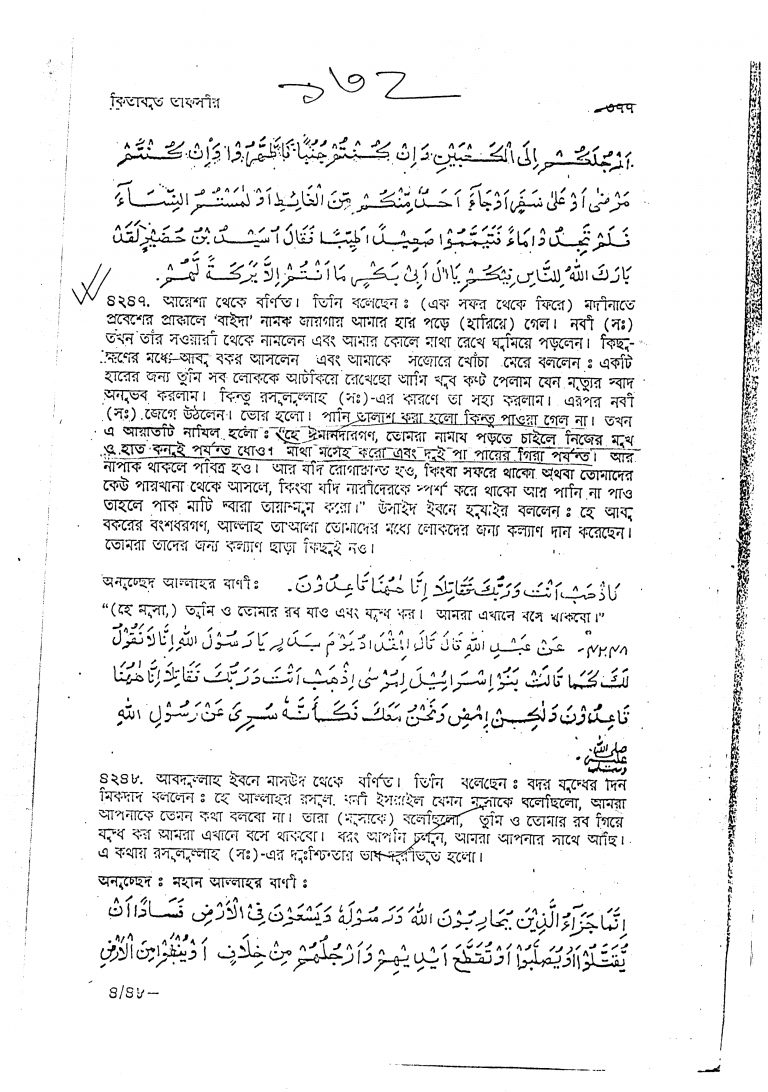 ১৩২
কিতাবুত তাফসীর ৩৭৭
اَرْجُلَكُمْ اِلَى الْكَعْبَيْنِ وَاِنْ كُنْتُمْ جُنُبًا فَاطَّهَّرُوْا وَاِنْ كُنْتُمْ
مَرْضٰى اَوْ عَلٰى سَفَرٍ اَوْ جَاءَ اَحَدٌ مِّنْكُمْ مِّنَ الْغَائِطِ اَوْ لٰمَسْتُمُ النِّسَاءَ
فَلَمْ تَجِدُوْا مَاءً فَتَيَمَّمُوْا صَعِيْدًا طَيِّبًا فَقَالَ اُسَيْدُ بْنُ حُضَيْرٍ لَقَدْ
بَارَكَ اللّٰهُ لِلنَّاسِ فِيْكُمْ يَا اٰلَ اَبِىْ بَكْرٍ مَا اَنْتُمْ اِلَّا بَرَكَةٌ لَّهُمْ.
৪২৪৭. আয়েশা থেকে বর্ণিত। তিনি বলেছেন : (এক সফর থেকে ফিরে) মদীনাতে
প্রবেশের প্রাক্কালে 'বাইদা' নামক জায়গায় আমার হার পড়ে (হারিয়ে) গেল। নবী (সঃ)
তখন তাঁর সওয়ারী থেকে নামলেন এবং আমার কোলে মাথা রেখে ঘুমিয়ে পড়লেন। কিছু-
ক্ষণের মধ্যে আবু বকর আসলেন এবং আমাকে সজোরে খোঁচা মেরে বললেন : একটি
হারের জন্য তুমি সব লোককে আটকিয়ে রেখেছো আমি খুব কষ্ট পেলাম যেন মৃত্যুর স্বাদ
অনুভব করলাম। কিন্তু রসূলুল্লাহ (সঃ)-এর কারণে তা সহ্য করলাম। এরপর নবী
(সঃ) জেগে উঠলেন। ভোর হলো। পানি তালাশ করা হলো কিন্তু পাওয়া গেল না। তখন
এ আয়াতটি নাযিল হলো : "হে ঈমানদারগণ, তোমরা নামায পড়তে চাইলে নিজের মুখ
ও হাত কনুই পর্যন্ত ধোও। মাথা মসেহ করো এবং দুই পা পায়ের গিরা পর্যন্ত। আর
নাপাক থাকলে পবিত্র হও। আর যদি রোগাক্রান্ত হও, কিংবা সফরে থাকো অথবা তোমাদের
কেউ পায়খানা থেকে আসলে, কিংবা যদি নারীদেরকে স্পর্শ করে থাকো আর পানি না পাও
তাহলে পাক মাটি দ্বারা তায়াম্মুম করো।" উসাইদ ইবনে হুযাইর বললেন : হে আবু
বকরের বংশধরগণ, আল্লাহ তা'আলা তোমাদের মধ্যে লোকদের জন্য কল্যাণ দান করেছেন।
তোমরা তাদের জন্য কল্যাণ ছাড়া কিছুই নও।
অনুচ্ছেদ আল্লাহর বাণী : فَاذْهَبْ اَنْتَ وَرَبُّكَ فَقَاتِلَا اِنَّا هٰهُنَا قَاعِدُوْنَ.
"(হে মূসা,) তুমি ও তোমার রব যাও এবং যুদ্ধ কর। আমরা এখানে বসে থাকবো।"
٤٢٤٨- عَنْ عَبْدِ اللّٰهِ قَالَ قَالَ الْمِقْدَادُ يَوْمَ بَدْرٍ يَا رَسُوْلَ اللّٰهِ اِنَّا لَا نَقُوْلُ
لَكَ كَمَا قَالَتْ بَنُوْ اِسْرَائِيْلَ لِمُوْسٰى اِذْهَبْ اَنْتَ وَرَبُّكَ فَقَاتِلَا اِنَّا هٰهُنَا
قَاعِدُوْنَ وَلٰكِنْ اِمْضِ وَنَحْنُ مَعَكَ فَكَاَنَّهٗ سُرِّىَ عَنْ رَسُوْلِ اللّٰهِ
صلى الله عليه وسلم.
৪২৪৮. আবদুল্লাহ ইবনে মাসউদ থেকে বর্ণিত। তিনি বলেছেন : বদর যুদ্ধের দিন
মিকদাদ বললেন : হে আল্লাহর রসূল, বনী ইসরাইল যেমন মূসাকে বলেছিলো, আমরা
আপনাকে তেমন কথা বলবো না। তারা (মূসাকে) বলেছিলো, তুমি ও তোমার রব গিয়ে
যুদ্ধ কর আমরা এখানে বসে থাকবো। বরং আপনি চলুন, আমরা আপনার সাথে আছি।
এ কথায় রসূলুল্লাহ (সঃ)-এর দুঃশ্চিন্তার ভাব দূরীভূত হলো।
অনুচ্ছেদ : মহান আল্লাহর বাণী :
اِنَّمَا جَزَاءُ الَّذِيْنَ يُحَارِبُوْنَ اللّٰهَ وَرَسُوْلَهٗ وَيَسْعَوْنَ فِى الْاَرْضِ فَسَادًا اَنْ
يُّقَتَّلُوْا اَوْ يُصَلَّبُوْا اَوْ تُقَطَّعَ اَيْدِيْهِمْ وَاَرْجُلُهُمْ مِنْ خِلَافٍ اَوْ يُنْفَوْا مِنَ الْاَرْضِ
৪/৪৮—